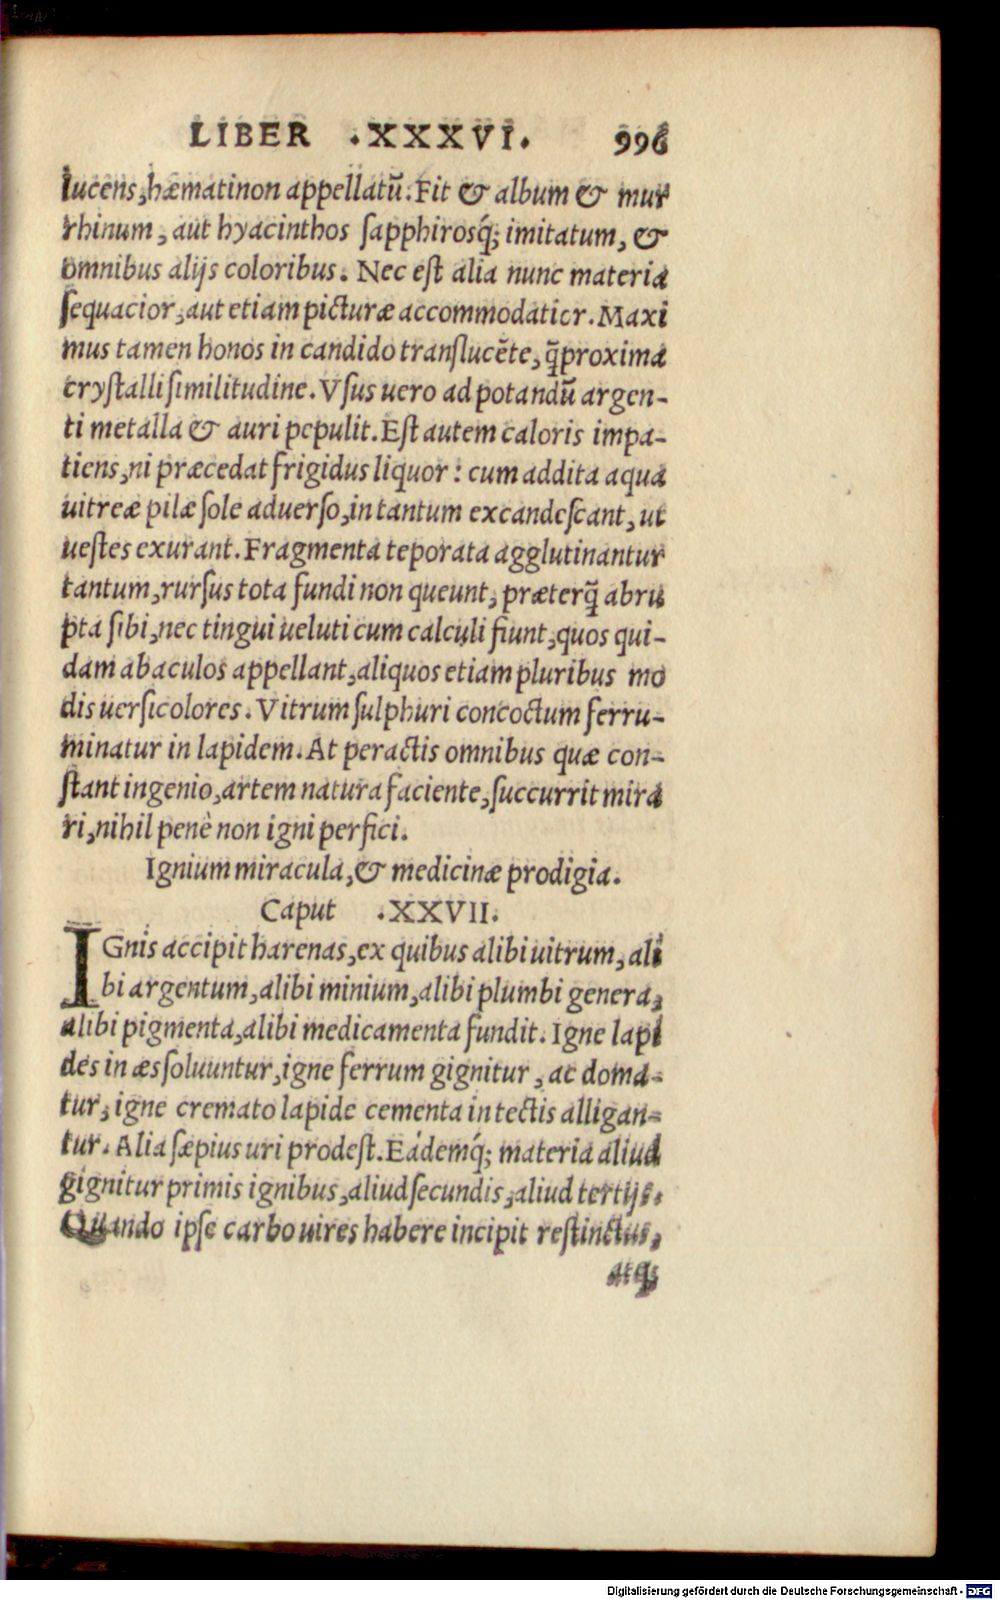 LIBER .XXXVI. 996
lucens, hæmatinon appellatū. Fit & album & mur
rhinum, aut hyacinthos sapphirosq́; imitatum, &
omnibus alijs coloribus. Nec est alia nunc materia
sequacior, aut etiam picturæ accommodatior. Maxi
mus tamen honos in candido translucēte, q̄proxima
crystalli similitudine. Vsus uero ad potandū argen-
ti metalla & auri pepulit. Est autem caloris impa-
tiens, ni præcedat frigidus liquor: cum addita aqua
uitreæ pilæ sole aduerso, in tantum excandescant, ut
uestes exurant. Fragmenta teporata agglutinantur
tantum, rursus tota fundi non queunt, præterq̄ abru
pta sibi, nec tingui ueluti cum calculi fiunt, quos qui-
dam abaculos appellant, aliquos etiam pluribus mo
dis uersicolores. Vitrum sulphuri concoctum ferru-
minatur in lapidem. At peractis omnibus quæ con-
stant ingenio, artem natura faciente, succurrit mira
ri, nihil penè non igni perfici.
Ignium miracula, & medicinæ prodigia.
Caput .XXVII.
IGnis accipit harenas, ex quibus alibi uitrum, ali
bi argentum, alibi minium, alibi plumbi genera,
alibi pigmenta, alibi medicamenta fundit. Igne lapi
des in æs soluuntur, igne ferrum gignitur, ac doma-
tur, igne cremato lapide cementa in tectis alligan-
tur. Alia sæpius uri prodest. Eádemq́; materia aliud
gignitur primis ignibus, aliud secundis, aliud tertijs.
Quando ipse carbo uires habere incipit restinctus,
atq;
Digitalisierung gefördert durch die Deutsche Forschungsgemeinschaft - DFG